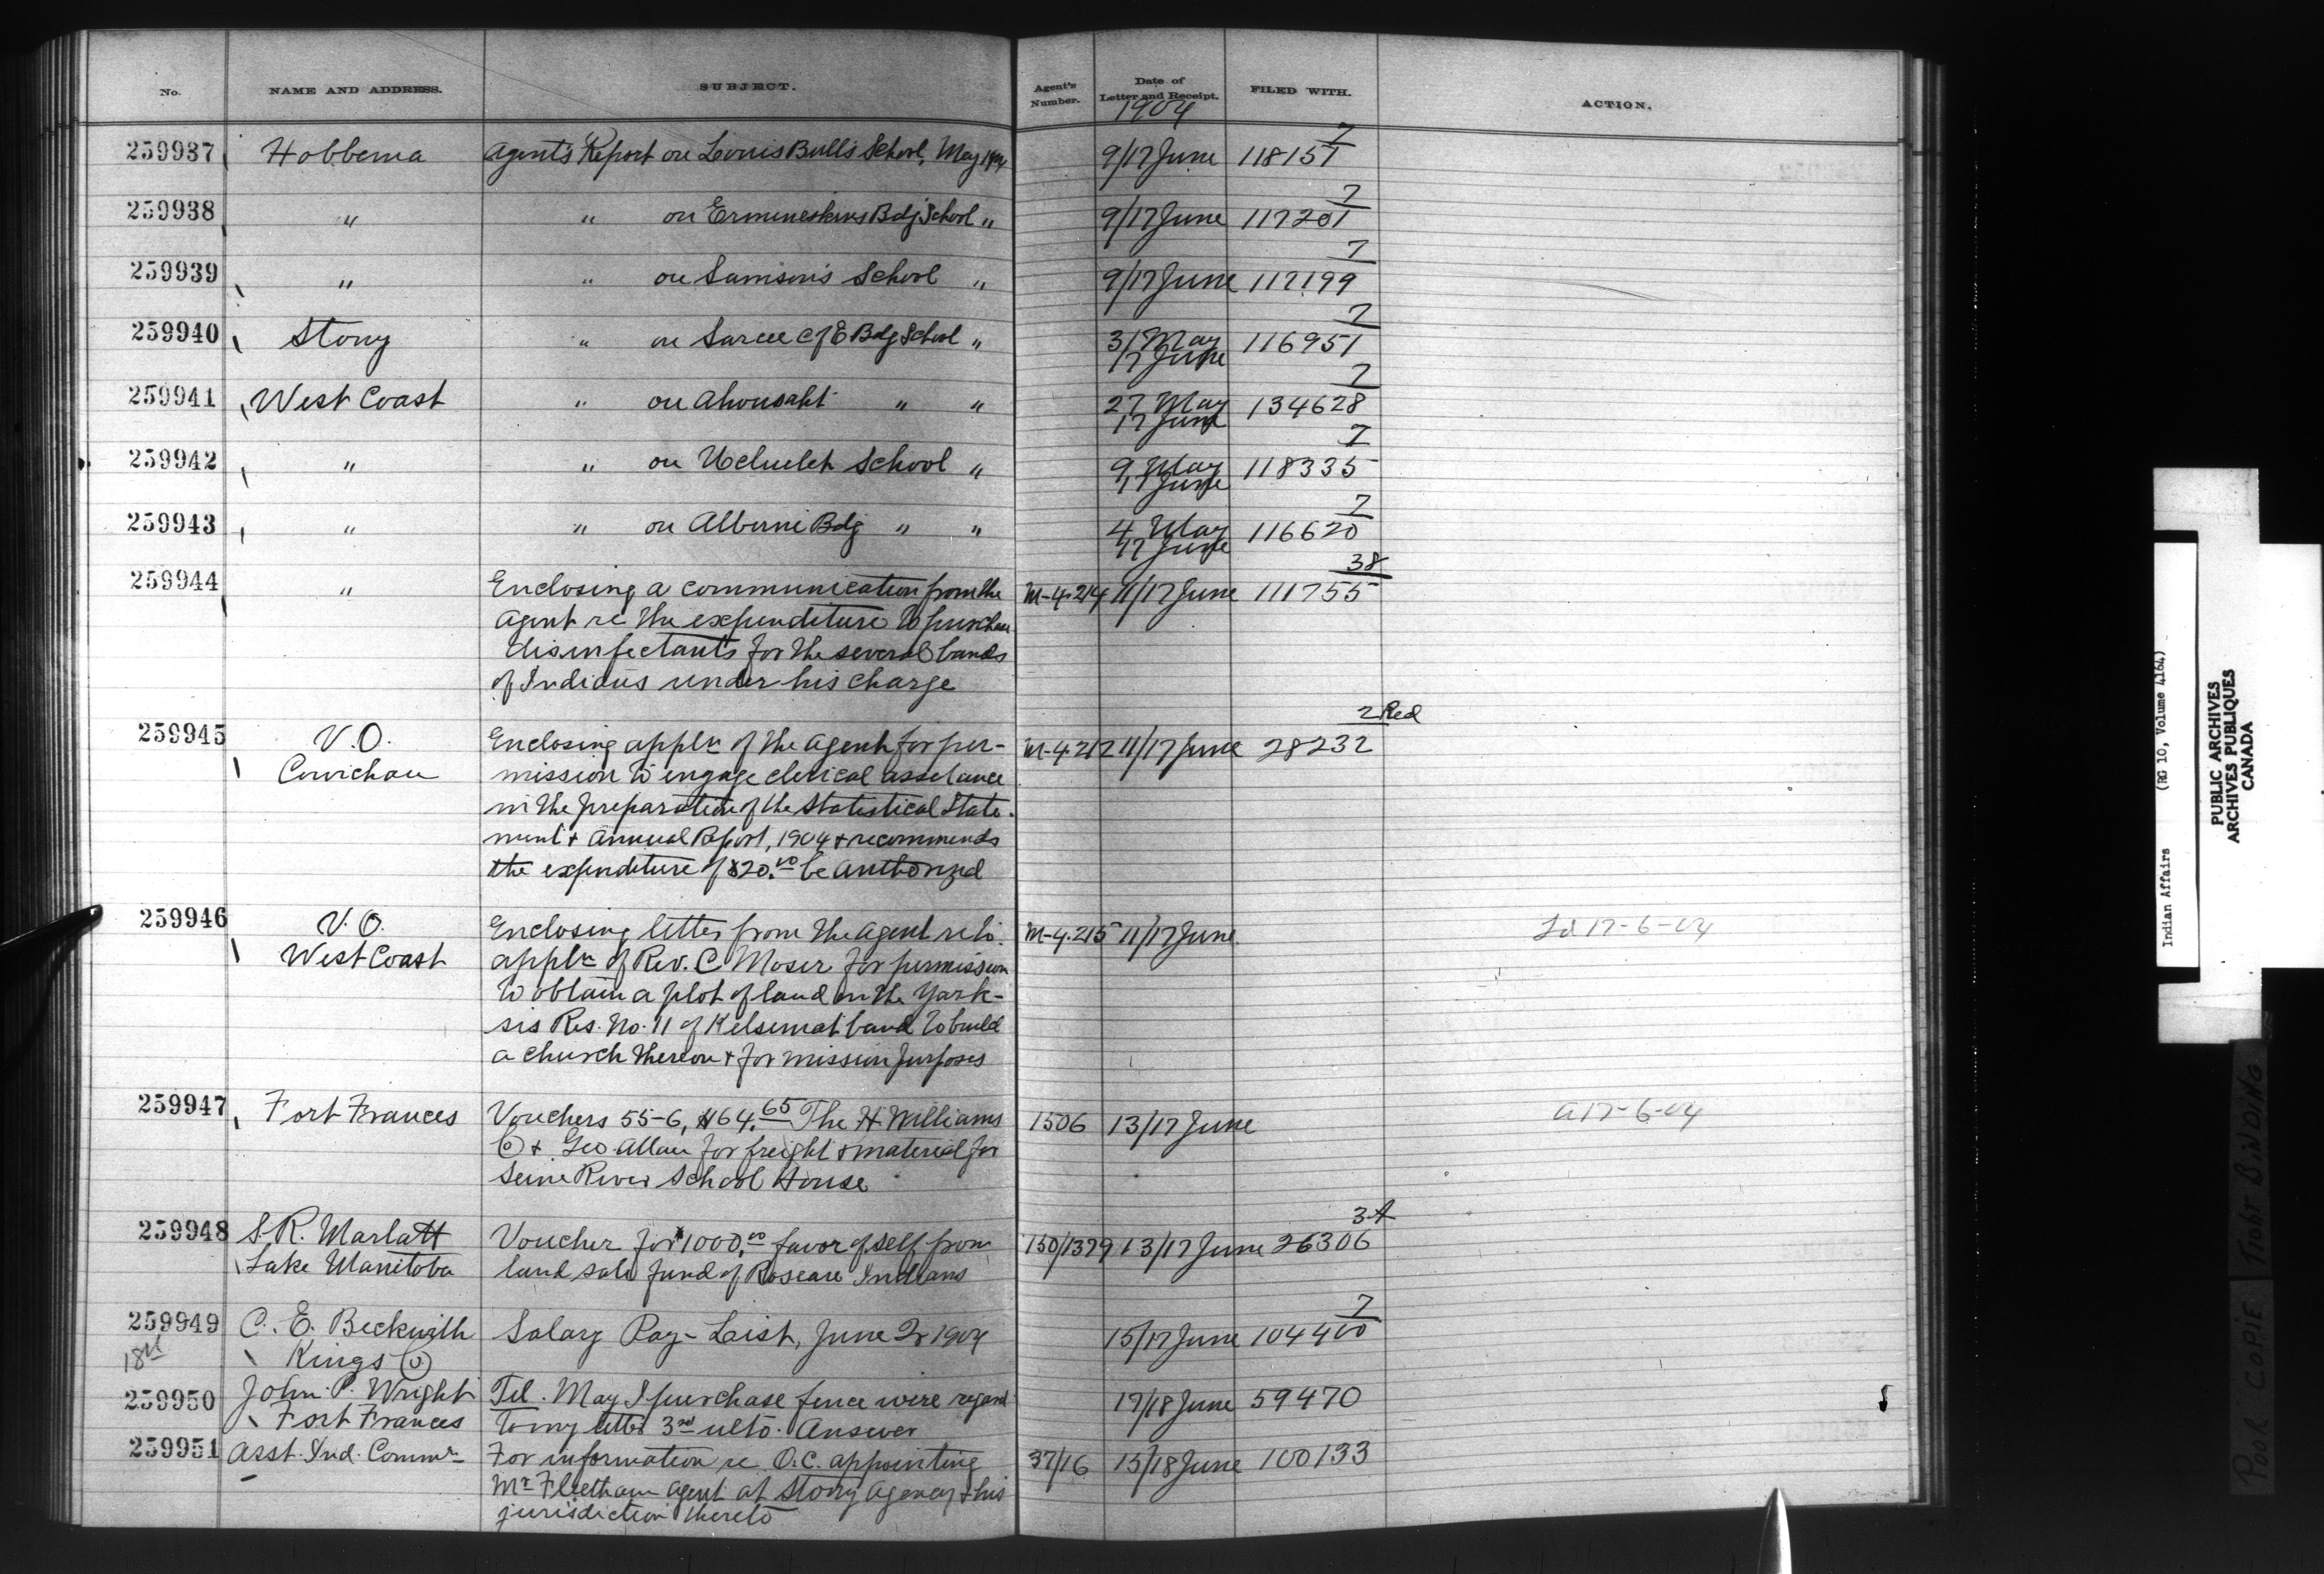 No. NAME AND ADDRESS. SUBJECT. Agent's Number. Date of Letter and Receipt. FILED WITH. ACTION.
1904
7
259937 Hobbema Agent's Report on Louis Bull's School, May 1904 9/17 June 118151
7
259938 " " on Ermineskins Bdg School " 9/17 June 117201
7
259939 " " on Samson's School " 9/17 June 117199
7
259940 Stony " on Sarcee C of E Bdg School " 31 May 116951
17 June
7
259941 West Coast " on Ahousaht " " 27 May 134628
17 June
7
259942 " " on Ucluelet School " 9 May 118335
17 June
7
259943 " " on Alberni Bdg " " 4 May 116620
17 June
38
259944 " Enclosing a communication from the M-4.214 11/17 June 111755
Agent re the expenditure to purchase
disinfectants for the several bands
of Indians under his charge
2 Red
259945 V.O. Enclosing appln of the Agent for per- M-4.212 11/17 June 28232
Cowichan mission to engage clerical assetance
in the preparation of the Statistical State-
ment & Annual Report, 1904 & recommends
the expenditure of $20.00 be authorized
259946 V.O. Enclosing letter from the Agent relo. M-4.215 11/17 June Ld 17-6-04
West Coast appln of Rev. C Moser for permission
to obtain a plot of land on the Yark-
sis Res. No. 11 of Kelsemat band to build
a church thereon & for mission purposes
259947 Fort Frances Vouchers 55-6, $64.65 The H. Williams 1506 13/17 June A 17-6-04
Co & Geo. Allan for freight & material for
Seine River School House
3A
259948 S.R. Marlatt Voucher for $1000.00 favor of self from 150/1379 13/17 June 26306
Lake Manitoba land sale fund of Roseau Indians
7
259949 C. E. Beckwith Salary Pay-List, June Qr 1904 15/17 June 104400
18th Kings Co
259950 John P. Wright Tel. May I purchase fence wire regard 17/18 June 59470
Fort Frances to my letter 3rd ulto. Answer
259951 Asst. Ind. Commr For information re O.C. appointing 37/16 15/18 June 100133
Mr Fleetham agent at Stony Agency & his
jurisdiction thereto
Indian Affairs (RG 10, Volume 4164)
PUBLIC ARCHIVES
ARCHIVES PUBLIQUES
CANADA
POOR COPIE TIGHT BINDING